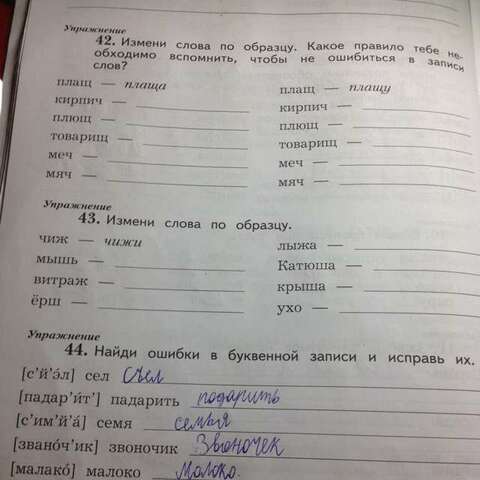 Упражнение
42. Измени слова по образцу. Какое правило тебе не-
обходимо вспомнить, чтобы не ошибиться в записи
слов?
плащ — плаща плащ — плащу
кирпич — кирпич —
плющ — плющ —
товарищ — товарищ —
меч — меч —
мяч — мяч —
Упражнение
43. Измени слова по образцу.
чиж — чижи лыжа —
мышь — Катюша —
витраж — крыша —
ёрш — ухо —
Упражнение
44. Найди ошибки в буквенной записи и исправь их.
[с'й'э́л] сел Съел
[падар'и́т'] падарить подарить
[с'им'й'а́] семя семья
[звано́ч'ик] звоночик Звоночек
[малако́] малоко Молоко.